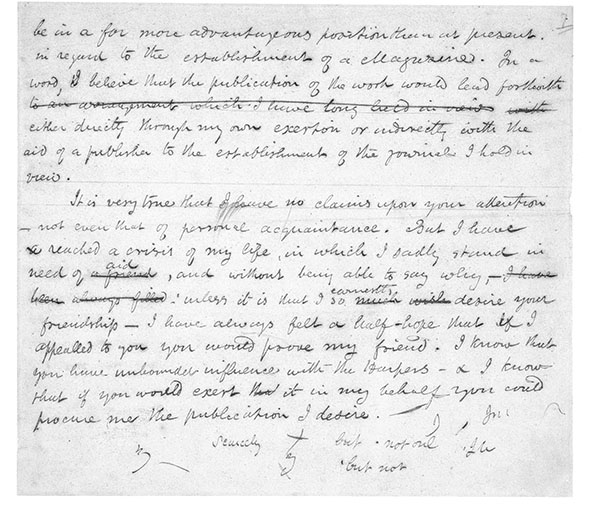 be in a far more advantageous position than at present.
in regard to the establishment of a Magazine. In a
word, I believe that the publication of the work would lead forthwith
to an arrangement which I have long held in view with
either directly through my own exertion or indirectly with the
aid of a publisher to the establishment of the journal I hold in
view.
It is very true that I have no claims upon your attention
— not even that of personal acquaintance. But I have
reached a crisis of my life, in which I sadly stand in
aid
need of a friend, and without being able to say why, — I have
earnestly
been always filled : unless it is that I so much wish desire your
friendship — I have always felt a half-hope that if I
appealled to you you would prove my friend. I know that
you have unbounded influence with the Harpers — & I know
that if you would exert that it in my behalf you could
procure me the publication I desire. —
but
but not